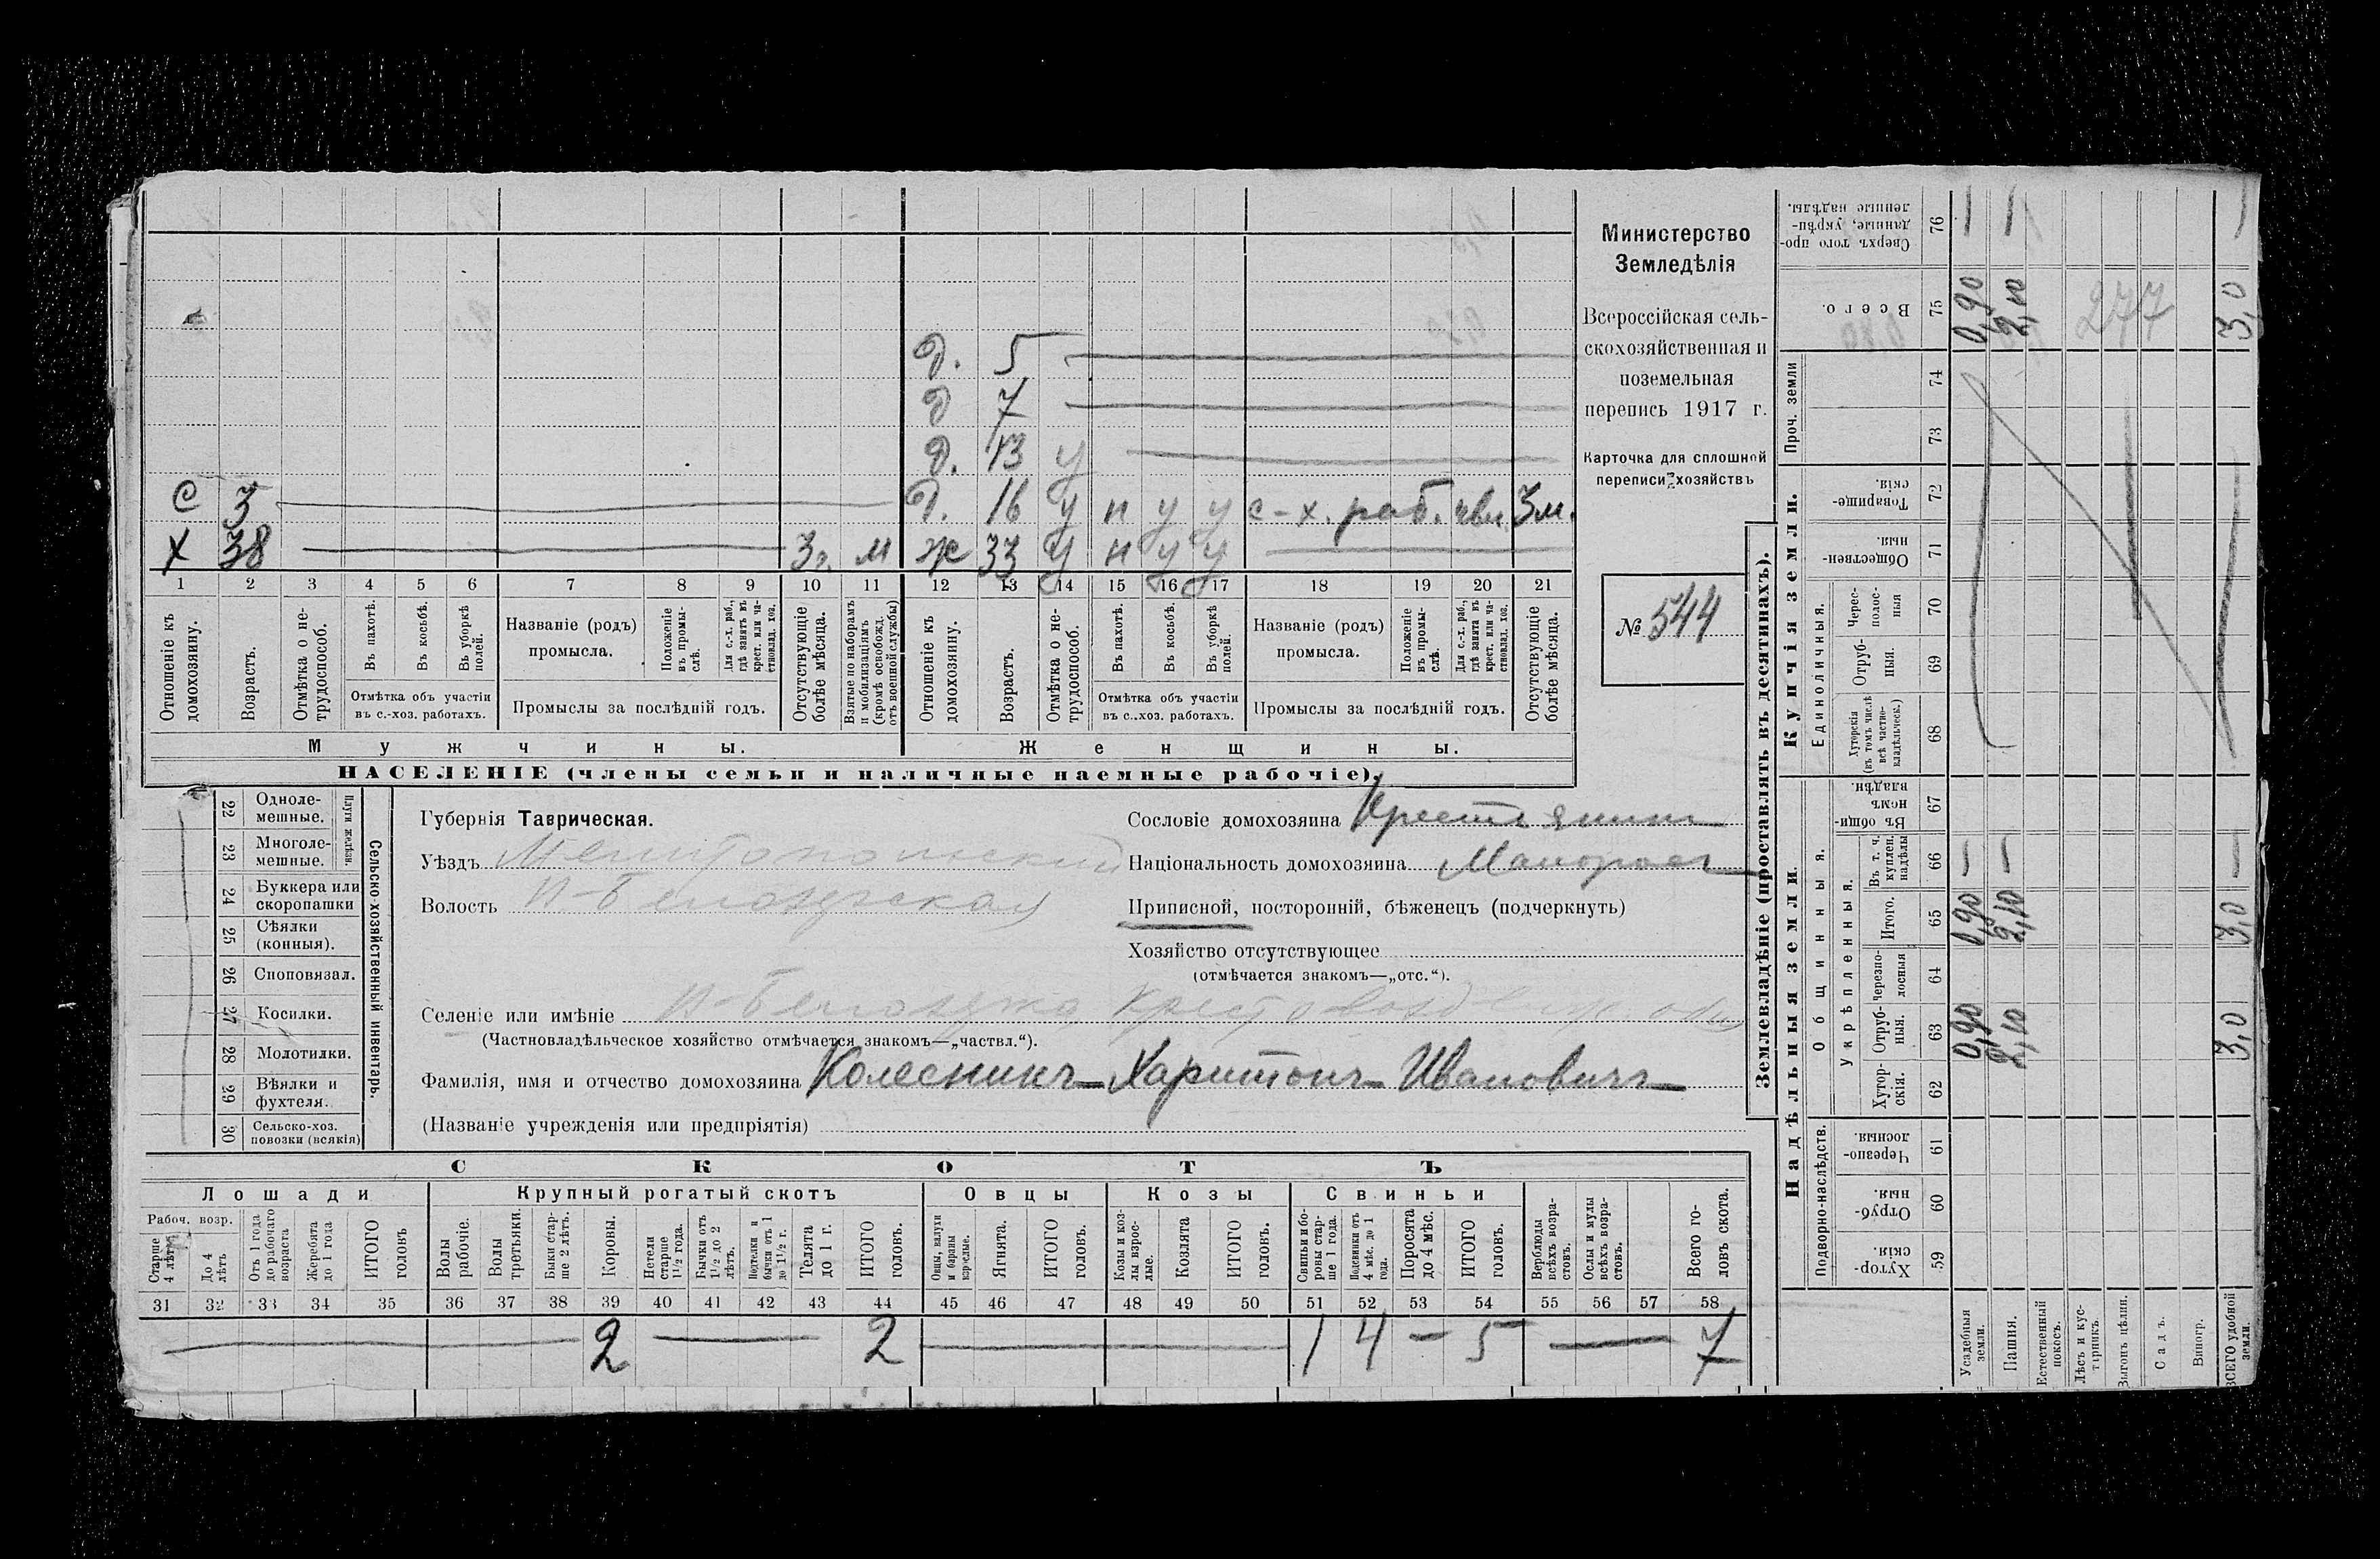 Министерство
Земледѣлія
Всероссійская сель-
скохозяйственная и
поземельная
перепись 1917 г.
Карточка для сплошной
переписи хозяйствъ
№ 544
д. 5
д 7
д. 13 у
с 3 д. 16 у п у у с-х. раб. 3м.
х 38 3г. м ж 33 у п у у
1 2 3 4 5 6 7 8 9 10 11 12 13 14 15 16 17 18 19 20 21
Отношеніе къ домохозяину.
Возрастъ.
Отмѣтка о не-трудоспособ.
Въ пахотѣ.
Въ косьбѣ.
Въ уборкѣ полей.
Отмѣтка объ участіи въ с.-хоз. работахъ.
Названіе (родъ) промысла.
Положеніе въ промы-слѣ.
Для с.-х. раб., гдѣ занятъ въ крест. или ча-стновлад. хоз.
Промыслы за послѣдній годъ.
Отсутствующіе болѣе мѣсяца.
Взятые по наборамъ и мобилизаціямъ (кромѣ освобожд. отъ военной службы)
Отношеніе къ домохозяину.
Возрастъ.
Отмѣтка о не-трудоспособ.
Въ пахотѣ.
Въ косьбѣ.
Въ уборкѣ полей.
Отмѣтка объ участіи въ с..хоз. работахъ.
Названіе (родъ) промысла.
Положеніе въ промы-слѣ.
Для с.-х. раб., гдѣ занята въ крест. или ча-стновлад. хоз.
Промыслы за послѣдній годъ.
Отсутствующіе болѣе мѣсяца.
Мужчины. Женщины.
НАСЕЛЕНІЕ (члены семьи и наличные наемные рабочіе).
22 Одноле-мешные.
23 Многоле-мешные.
Плуги желѣзн.
24 Буккера или скоропашки
25 Сѣялки (конныя).
26 Сноповязал.
27 Косилки.
28 Молотилки.
29 Вѣялки и фухтеля.
30 Сельско-хоз. повозки (всякія)
Сельско-хозяйственный инвентарь.
Губернія Таврическая.
Уѣздъ Мелитопольский
Волость В-Белозерская
Сословіе домохозяина Крестьянинъ
Національность домохозяина Малоросъ
Приписной, посторонній, бѣженецъ (подчеркнуть)
Хозяйство отсутствующее
(отмѣчается знакомъ—„отс.“).
Селеніе или имѣніе В-Белозерка
(Частновладѣльческое хозяйство отмѣчается знакомъ—„частвл.“).
Фамилія, имя и отчество домохозяина Колесникъ Харитонъ Ивановичъ
(Названіе учрежденія или предпріятія)
СКОТЪ
Лошади Крупный рогатый скотъ Овцы Козы Свиньи
Рабоч. возр.
Старше 4 лѣтъ
До 4 лѣтъ
Отъ 1 года до рабочаго возраста
Жеребята до 1 года
ИТОГО головъ
Волы рабочіе.
Волы третьяки.
Быки стар-ше 2 лѣтъ.
Коровы.
Нетели старше 1 1/2 года.
Бычки отъ 1 1/2 до 2 лѣтъ.
Подтелки и бычки отъ 1 до 1 1/2 г.
Телята до 1 г.
ИТОГО головъ.
Овцы, валухи и бараны взрослые.
Ягнята.
ИТОГО головъ.
Козы и коз-лы взрос-лые.
Козлята
ИТОГО головъ.
Свиньи и бо-ровы стар-ше 1 года.
Подсвинки отъ 4 мѣс. до 1 года.
Поросята до 4 мѣс.
ИТОГО головъ.
Верблюды всѣхъ возра-стовъ.
Ослы и мулы всѣхъ возра-стовъ.
Всего го-ловъ скота.
31 32 33 34 35 36 37 38 39 40 41 42 43 44 45 46 47 48 49 50 51 52 53 54 55 56 57 58
2 2 1 4 — 5 — 7
Землевладѣніе (проставлять въ десятинахъ).
Надѣльныя земли. Купчія земли.
Подворно-наслѣдств.
Общинныя.
Укрѣпленныя.
Единоличныя.
Проч. земли
Хутор-скія. 59
Отруб-ныя. 60
Черезпо-лосныя. 61
Хутор-скія. 62
Отруб-ныя. 63
Черезпо-лосныя 64
Итого. 65
Въ т. ч. куплен. надѣлы 66
Въ общин-номъ владѣн. 67
Хуторскія (въ томъ числѣ всѣ частно-владѣльческ.) 68
Отруб-ныя. 69
Черес-полос-ныя 70
Обществен-ныя. 71
Товарище-скія. 72
73
74
Всего. 75
Сверхъ того про-данные, укрѣп-ленные надѣлы. 76
Усадебныя земли. 0,90 0,90 0,90
Пашня. 2,10 2,10 2,10
Естественный покосъ.
Лѣсъ и кус-тарникъ.
Выгонъ цѣлин.
Садъ.
Виногр.
ВСЕГО удобной земли. 3,0 3,0 3,0
277